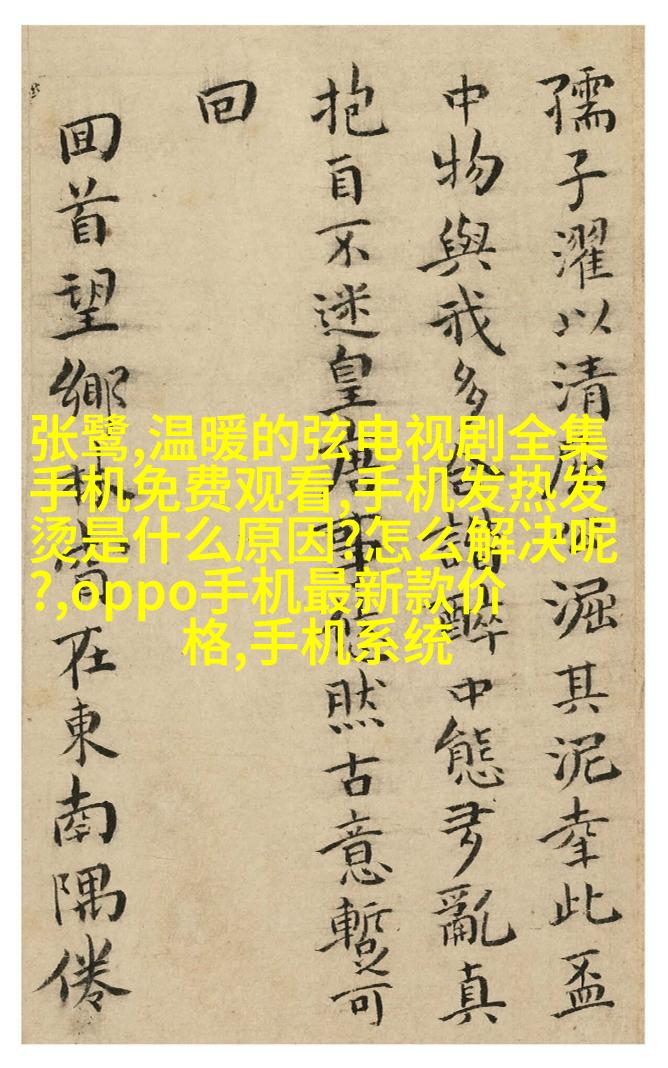 孺子濯以清淈其泥此盃
中物與我多醉中態亂真
抱自不迷皇然古意暫可
回
回首望鄉在東南隅倦
张鹭,温暖的弦电视剧全集
手机免费观看,手机发热发
烫是什么原因?怎么解决呢
?,oppo手机最新款价
格,手机系统